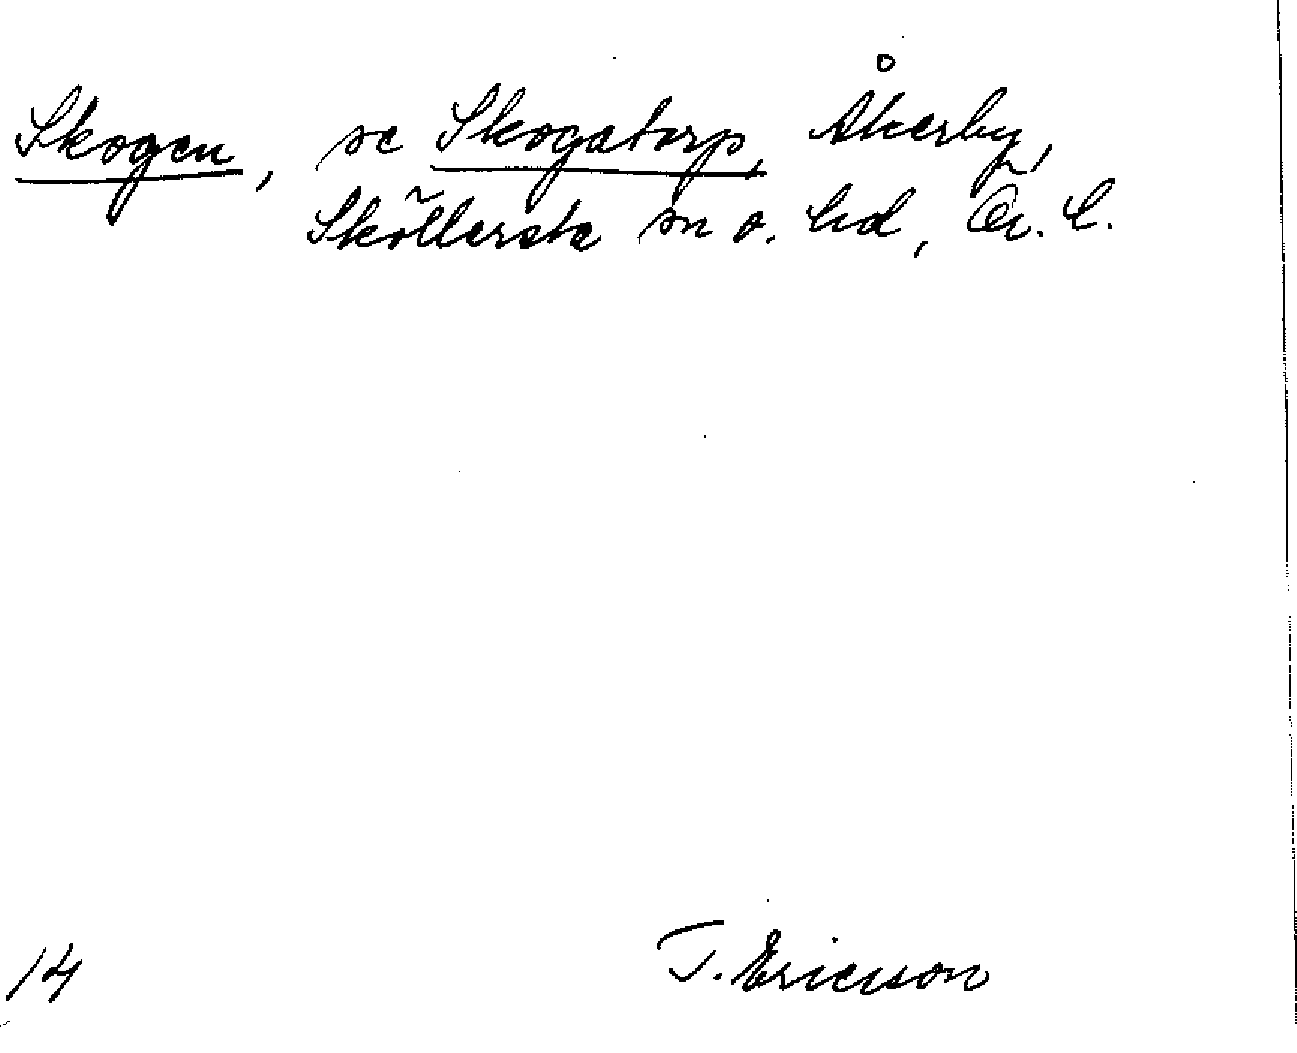 Skogen, se Skogatorp, Åkerby,
Sköllersta sn o. hd, Ör. l.
14
T. Ericson